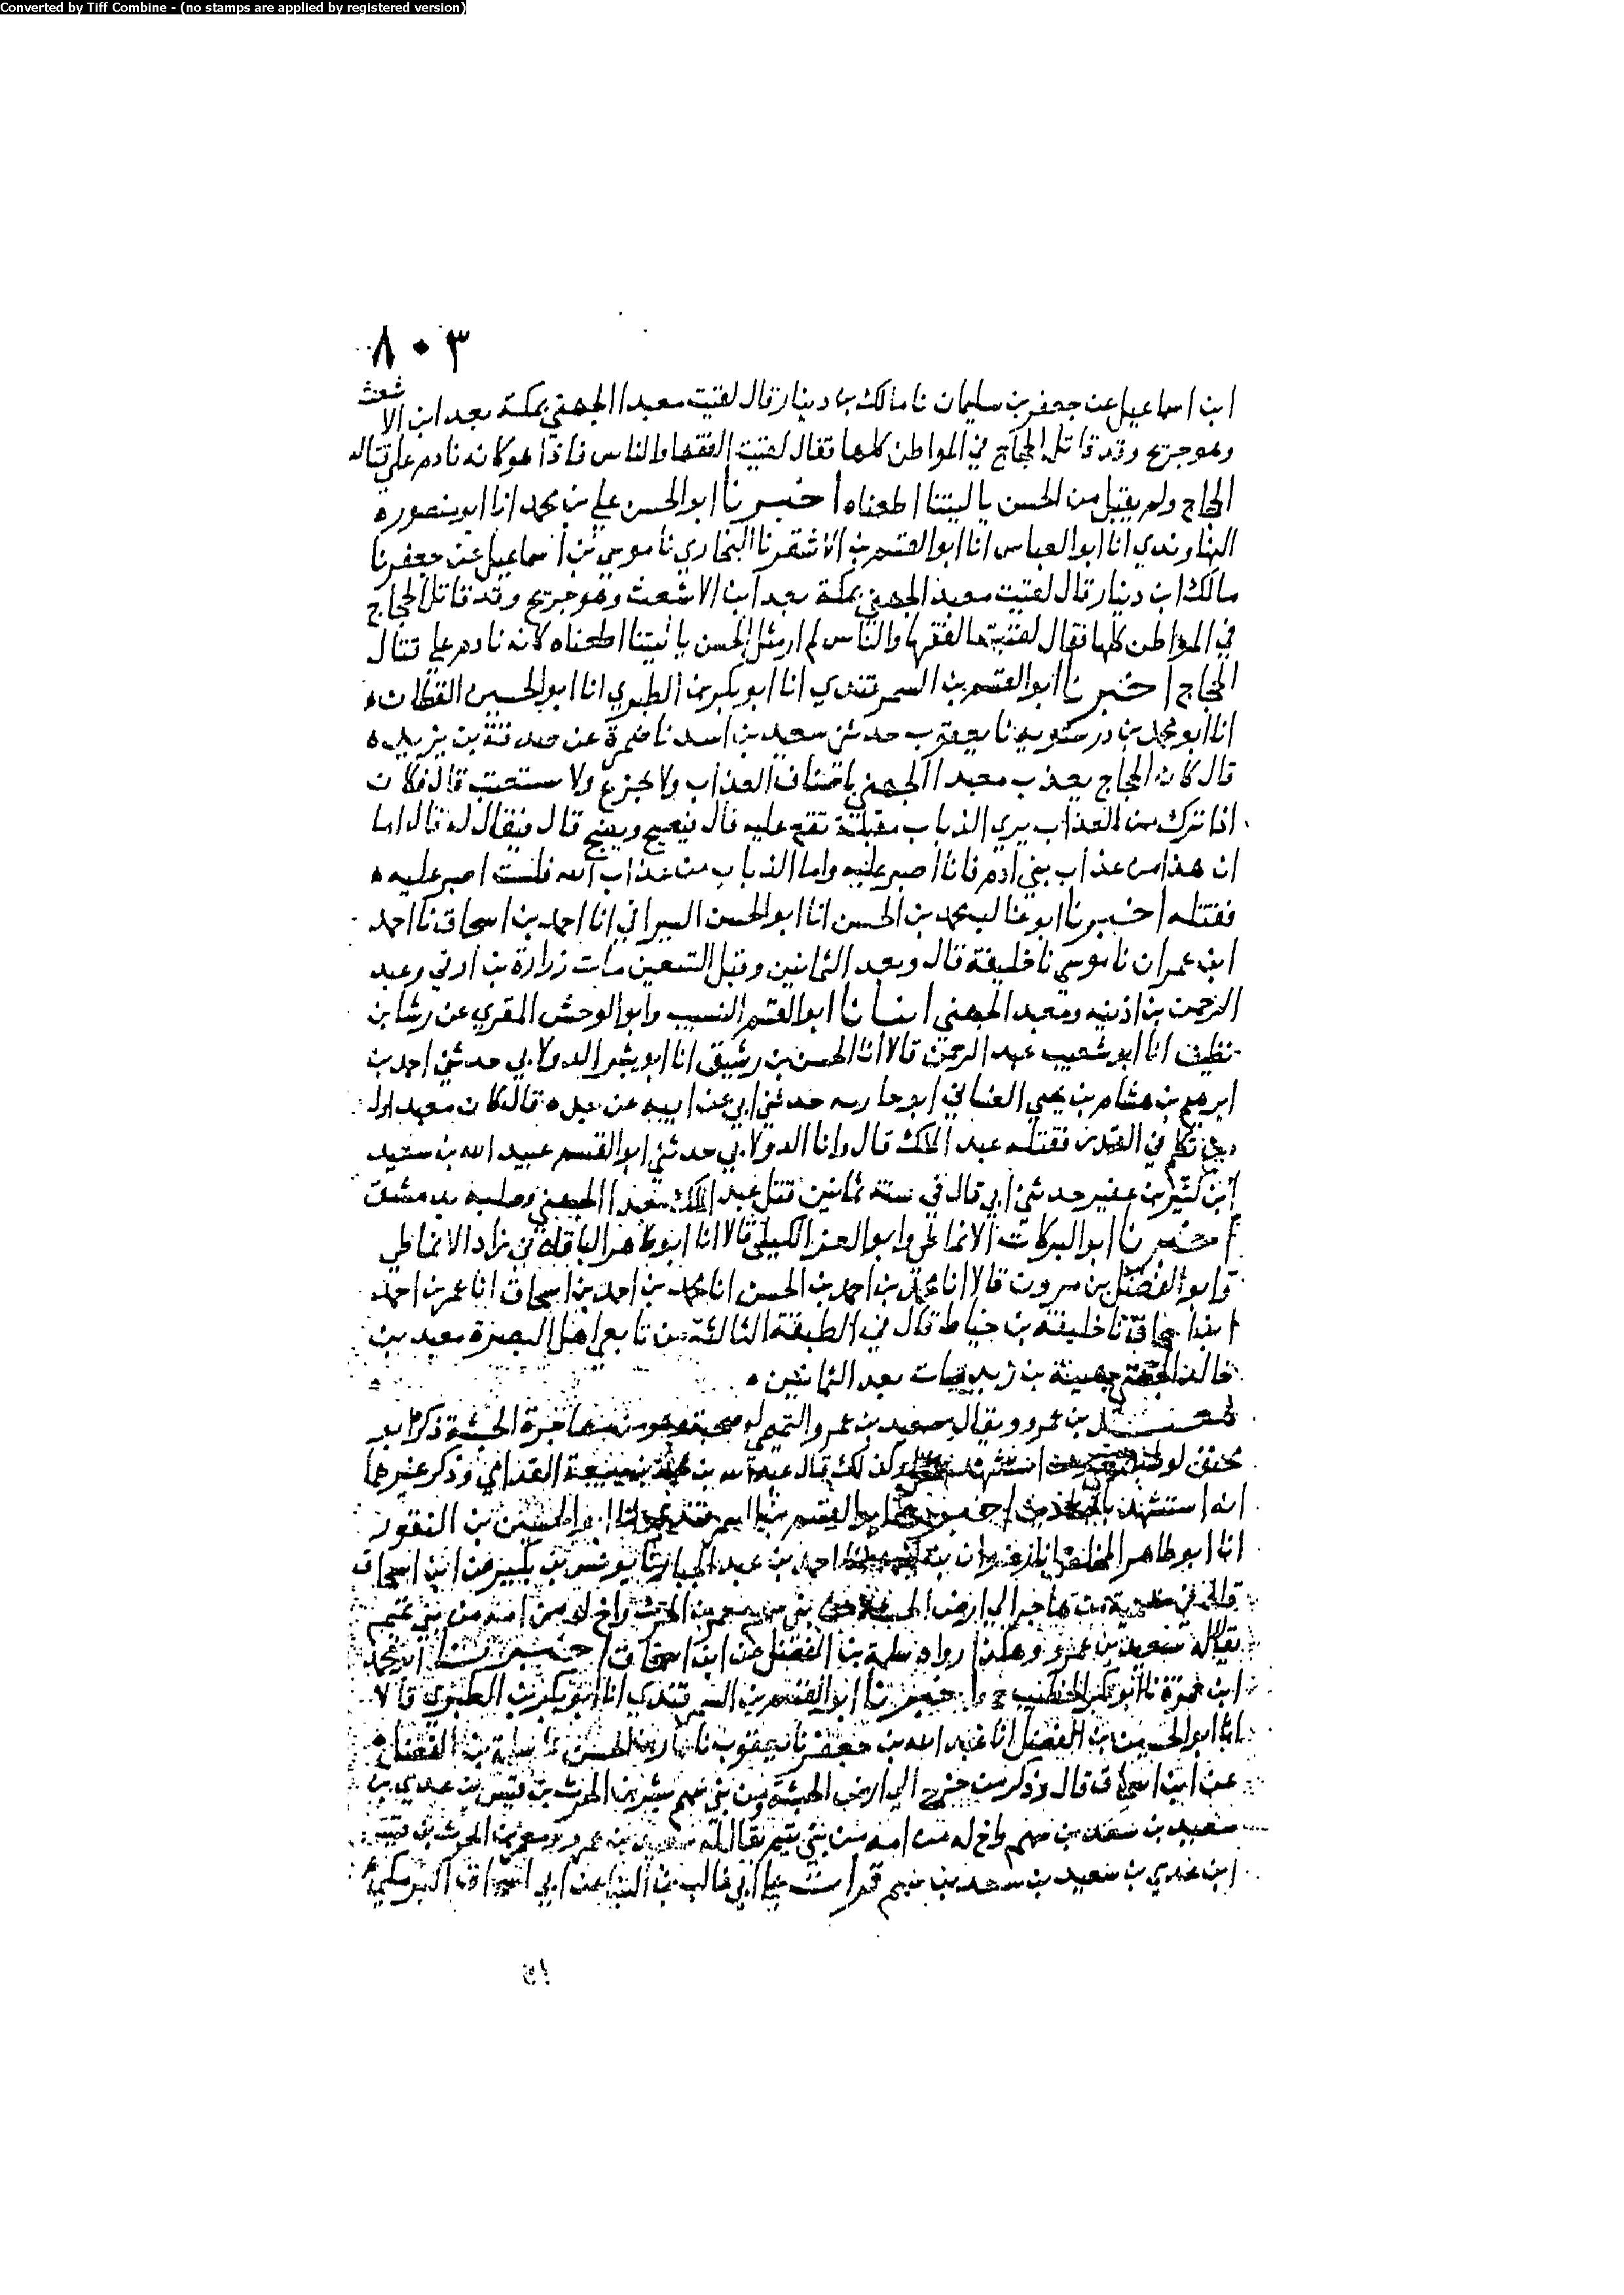 Converted by Tiff Combine - (no stamps are applied by registered version)
٨٠٣
ابن اسماعيل عن جعفر بن سليمان نا مالك بن دينار قال لقيت معبدا الجهني بمكة بعد ابن الاشعث
وهو جريح وقد قاتل الحجاج في المواطن كلها فقال لقيت الفقها والناس فاذا هو كانه نادم على قتاله
الحجاج ولم يقبل من الحسن يا ليتنا اطعناه اخبرنا ابو الحسن علي بن محمد انا ابو منصور ه
النهاوندي انا ابو العباس انا ابو القسم بن الاشقر نا البخاري نا موسى بن اسماعيل عن جعفر نا
مالك ابن دينار قال لقيت معبد الجهني بمكة بعد ابن الاشعث وهو جريح وقد قاتل الحجاج
في المواطن كلها فقال لقيت الفقها والناس لم ار مثل الحسن يا ليتنا اطعناه كانه نادم على قتال
الحجاج اخبرنا ابو القسم بن السمرقندي انا ابو بكر بن الطبري انا ابو الحسين القطان ه
انا ابو محمد بن درستويه نا يعقوب حدثني سعيد بن اسد نا ضمرة عن صدقة بن يزيد ه
قال كان الحجاج يعذب معبدا الجهني باصناف العذاب ولا يجزع ولا يستعتب قال فكان
اذا ترك من العذاب يرى الذباب مقبلة تقع عليه قال فيصيح ويضج قال فيقال له قال اما
ان هذا من عذاب بني ادم فانا اصبر عليه واما الذباب من عذاب الله فلست اصبر عليه ه
فقتله اخبرنا ابو غالب محمد بن الحسن انا ابو الحسن السيرافي انا احمد بن اسحاق نا احمد
ابن عمران نا موسى نا خليفة قال وبعد الثمانين وقبل التسعين مات زرارة بن اوفي وعبد
الرحمن بن اذينه ومعبد الجهني انبانا ابو القسم النسيب وابو الوحش المقري عن رشا بن
نظيف انا ابو شعيب عبد الرحمن قالا انا الحسن بن رشيق انا ابو بشر الدولابي حدثني احمد بن
ابرهيم بن هشام بن يحيى الغساني ابو حارثه حدثني ابي عن ابيه عن جده قال كان معبد اول
من تكلم في القدر فقتله عبد الملك قال وانا الدولابي حدثني ابو القسم عبيد الله بن سعيد
ابن كثير بن عفير حدثني ابي قال في سنة ثمانين قتل عبد الملك معبدا الجهني وصلبه بدمشق
اخبرنا ابو البركات الانماطي وابو العز الكيلي قالا انا ابو طاهر الباقلاني زاد الانماطي
وابو الفضل بن خيرون قالا انا محمد بن احمد بن الحسن انا محمد بن احمد بن اسحاق انا عمر بن احمد
ابن اسحاق نا خليفة بن خياط قال في الطبقة الثالثة من تابعي اهل البصرة معبد بن
خالد جهينة بن زيد مات بعد الثمانين ه
معبد بن عمرو ويقال سعيد بن عمرو التميمي له صحبة وهو من مهاجرة الحبشة ذكر ابو
مخنف لوط استشهد وكذلك قال عبد الله بن محمد بن ربيعة القدامي وذكر غيرهما
انه استشهد باجنادين اخبرنا ابو القسم بن السمرقندي انا ابو الحسين بن النقور
انا ابو طاهر المخلص انا رضوان بن احمد انا احمد بن عبد الجبار نا يونس بن بكير عن ابن اسحاق
قال في تسمية من هاجر الى ارض الحبشة من بني سهم معمر بن الحرث واخ له من امه من بني تميم
يقال له سعيد بن عمرو وهكذا رواه سلمة بن الفضل عن ابن اسحاق اخبرنا ابو محمد
ابن حمزة نا ابو بكر الخطيب ح واخبرنا ابو القسم بن السمرقندي انا ابو بكر بن الطبري قالا
انا ابو الحسين بن الفضل انا عبد الله بن جعفر نا يعقوب نا عمار بن الحسن نا سلمة بن الفضل
عن ابن اسحاق قال وذكر من خرج الى ارض الحبشة ومن بني سهم بشر بن الحرث بن قيس بن عدي بن
سعيد بن سعد بن سهم واخ له من امه من بني تيم يقال له سعيد بن عمرو ومعمر بن الحرث بن قيس
ابن عدي بن سعيد بن سعد بن سهم قرات على ابي غالب بن البنا عن ابي اسحاق البرمكي